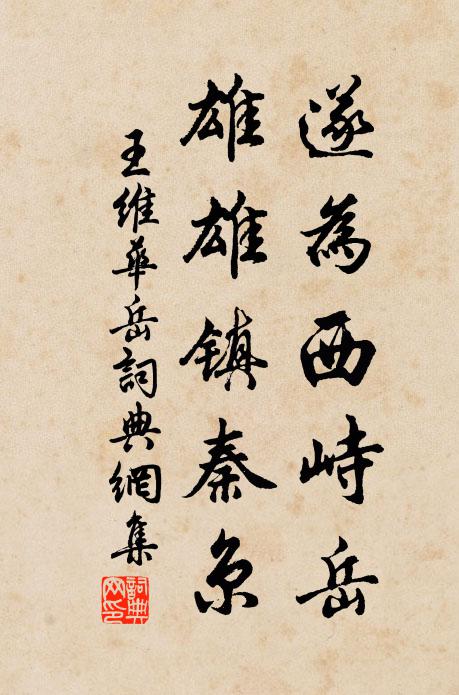 遂為西峙岳
雄雄镇秦京
王維華岳詞典網集
詞典網印